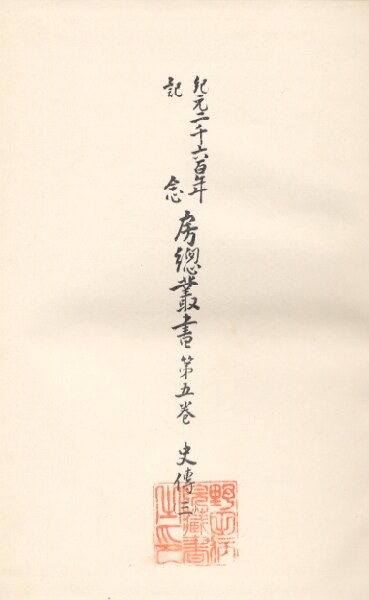 紀元二千六百年
記念
房總叢書 第五卷 史傳三